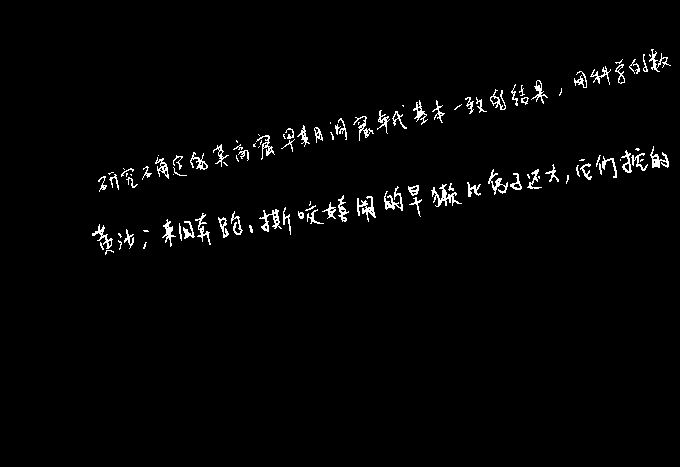 研究确定的莫高窟早期洞窟年代基本一致的结果，用科学的数
黄沙；来回奔跑、撕咬嬉闹的旱獭比兔子还大，它们挖的